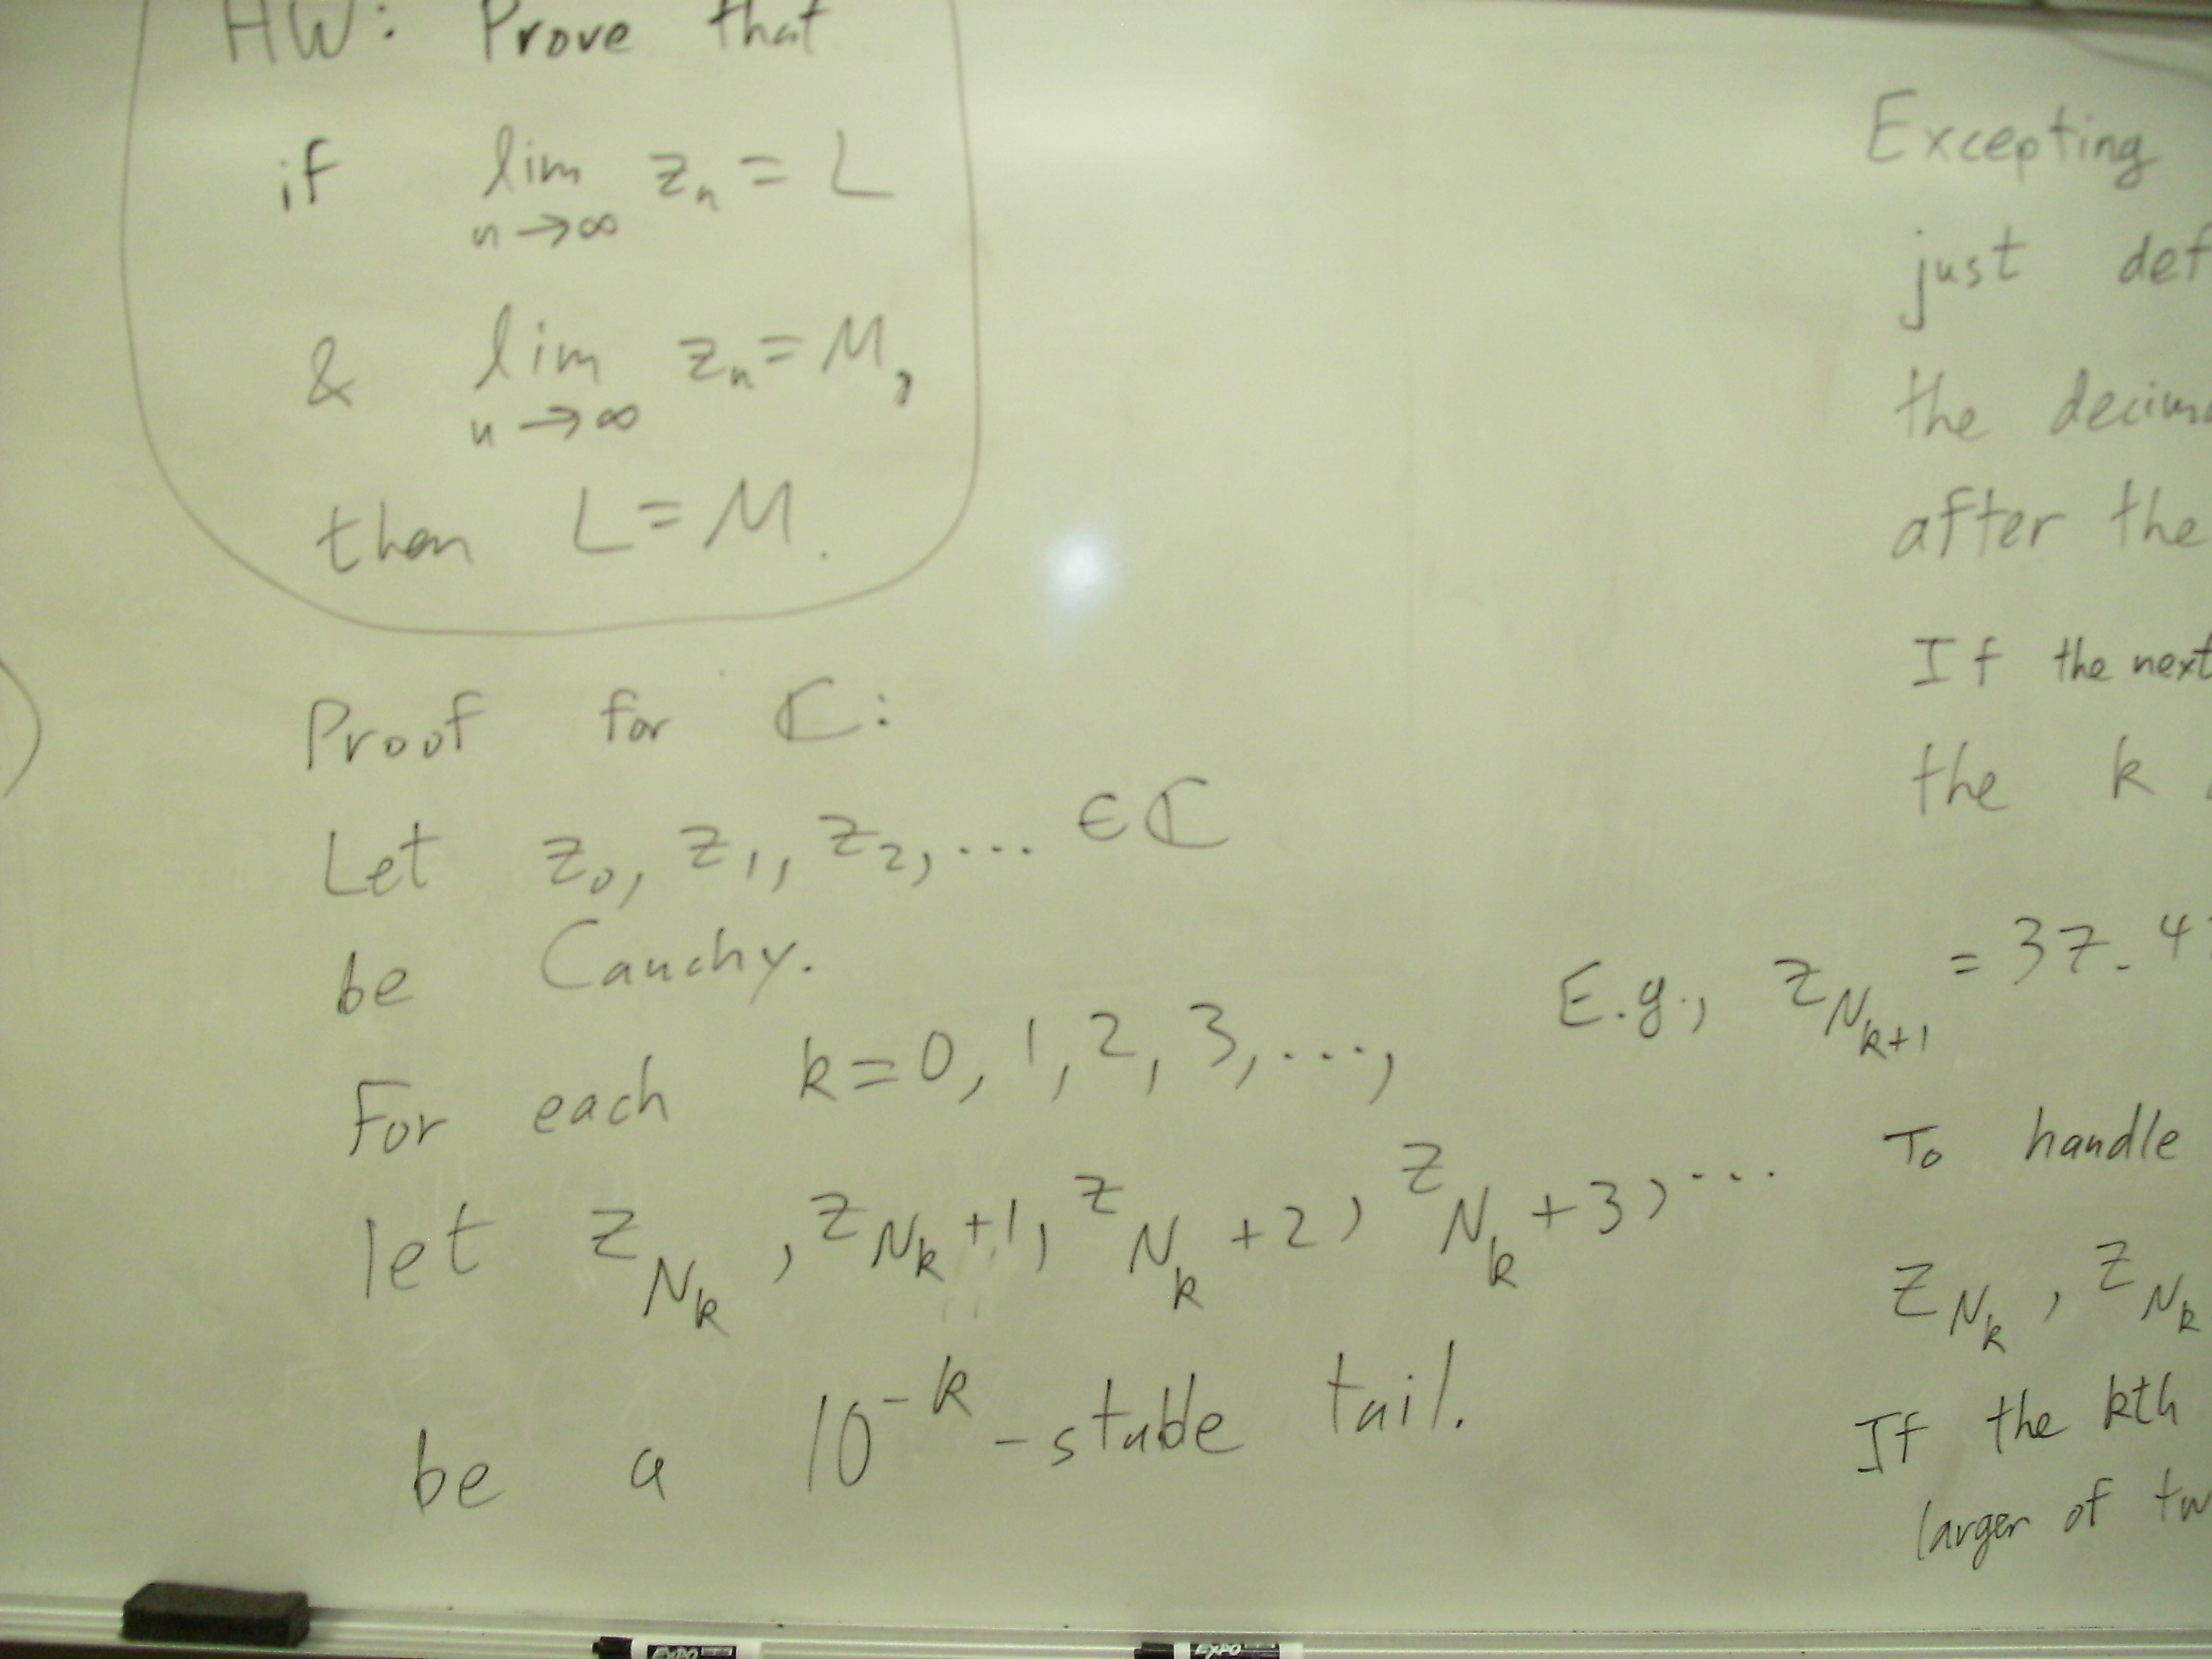 HW: Prove that
if lim z_n = L
n→∞
& lim z_n = M,
n→∞
then L = M.
Proof for ℂ:
Let z_0, z_1, z_2, ... ∈ ℂ
be Cauchy.
For each k = 0, 1, 2, 3, ...,
let z_{N_k}, z_{N_k+1}, z_{N_k+2}, z_{N_k+3}, ...
be a 10^{-k}-stable tail.
Excepting
just def
the decima
after the
If the next
the k
E.g., z_{N_{k+1}} = 37.4
To handle
z_{N_k}, z_{N_k
If the kth
larger of tw
EXPO
EXPO